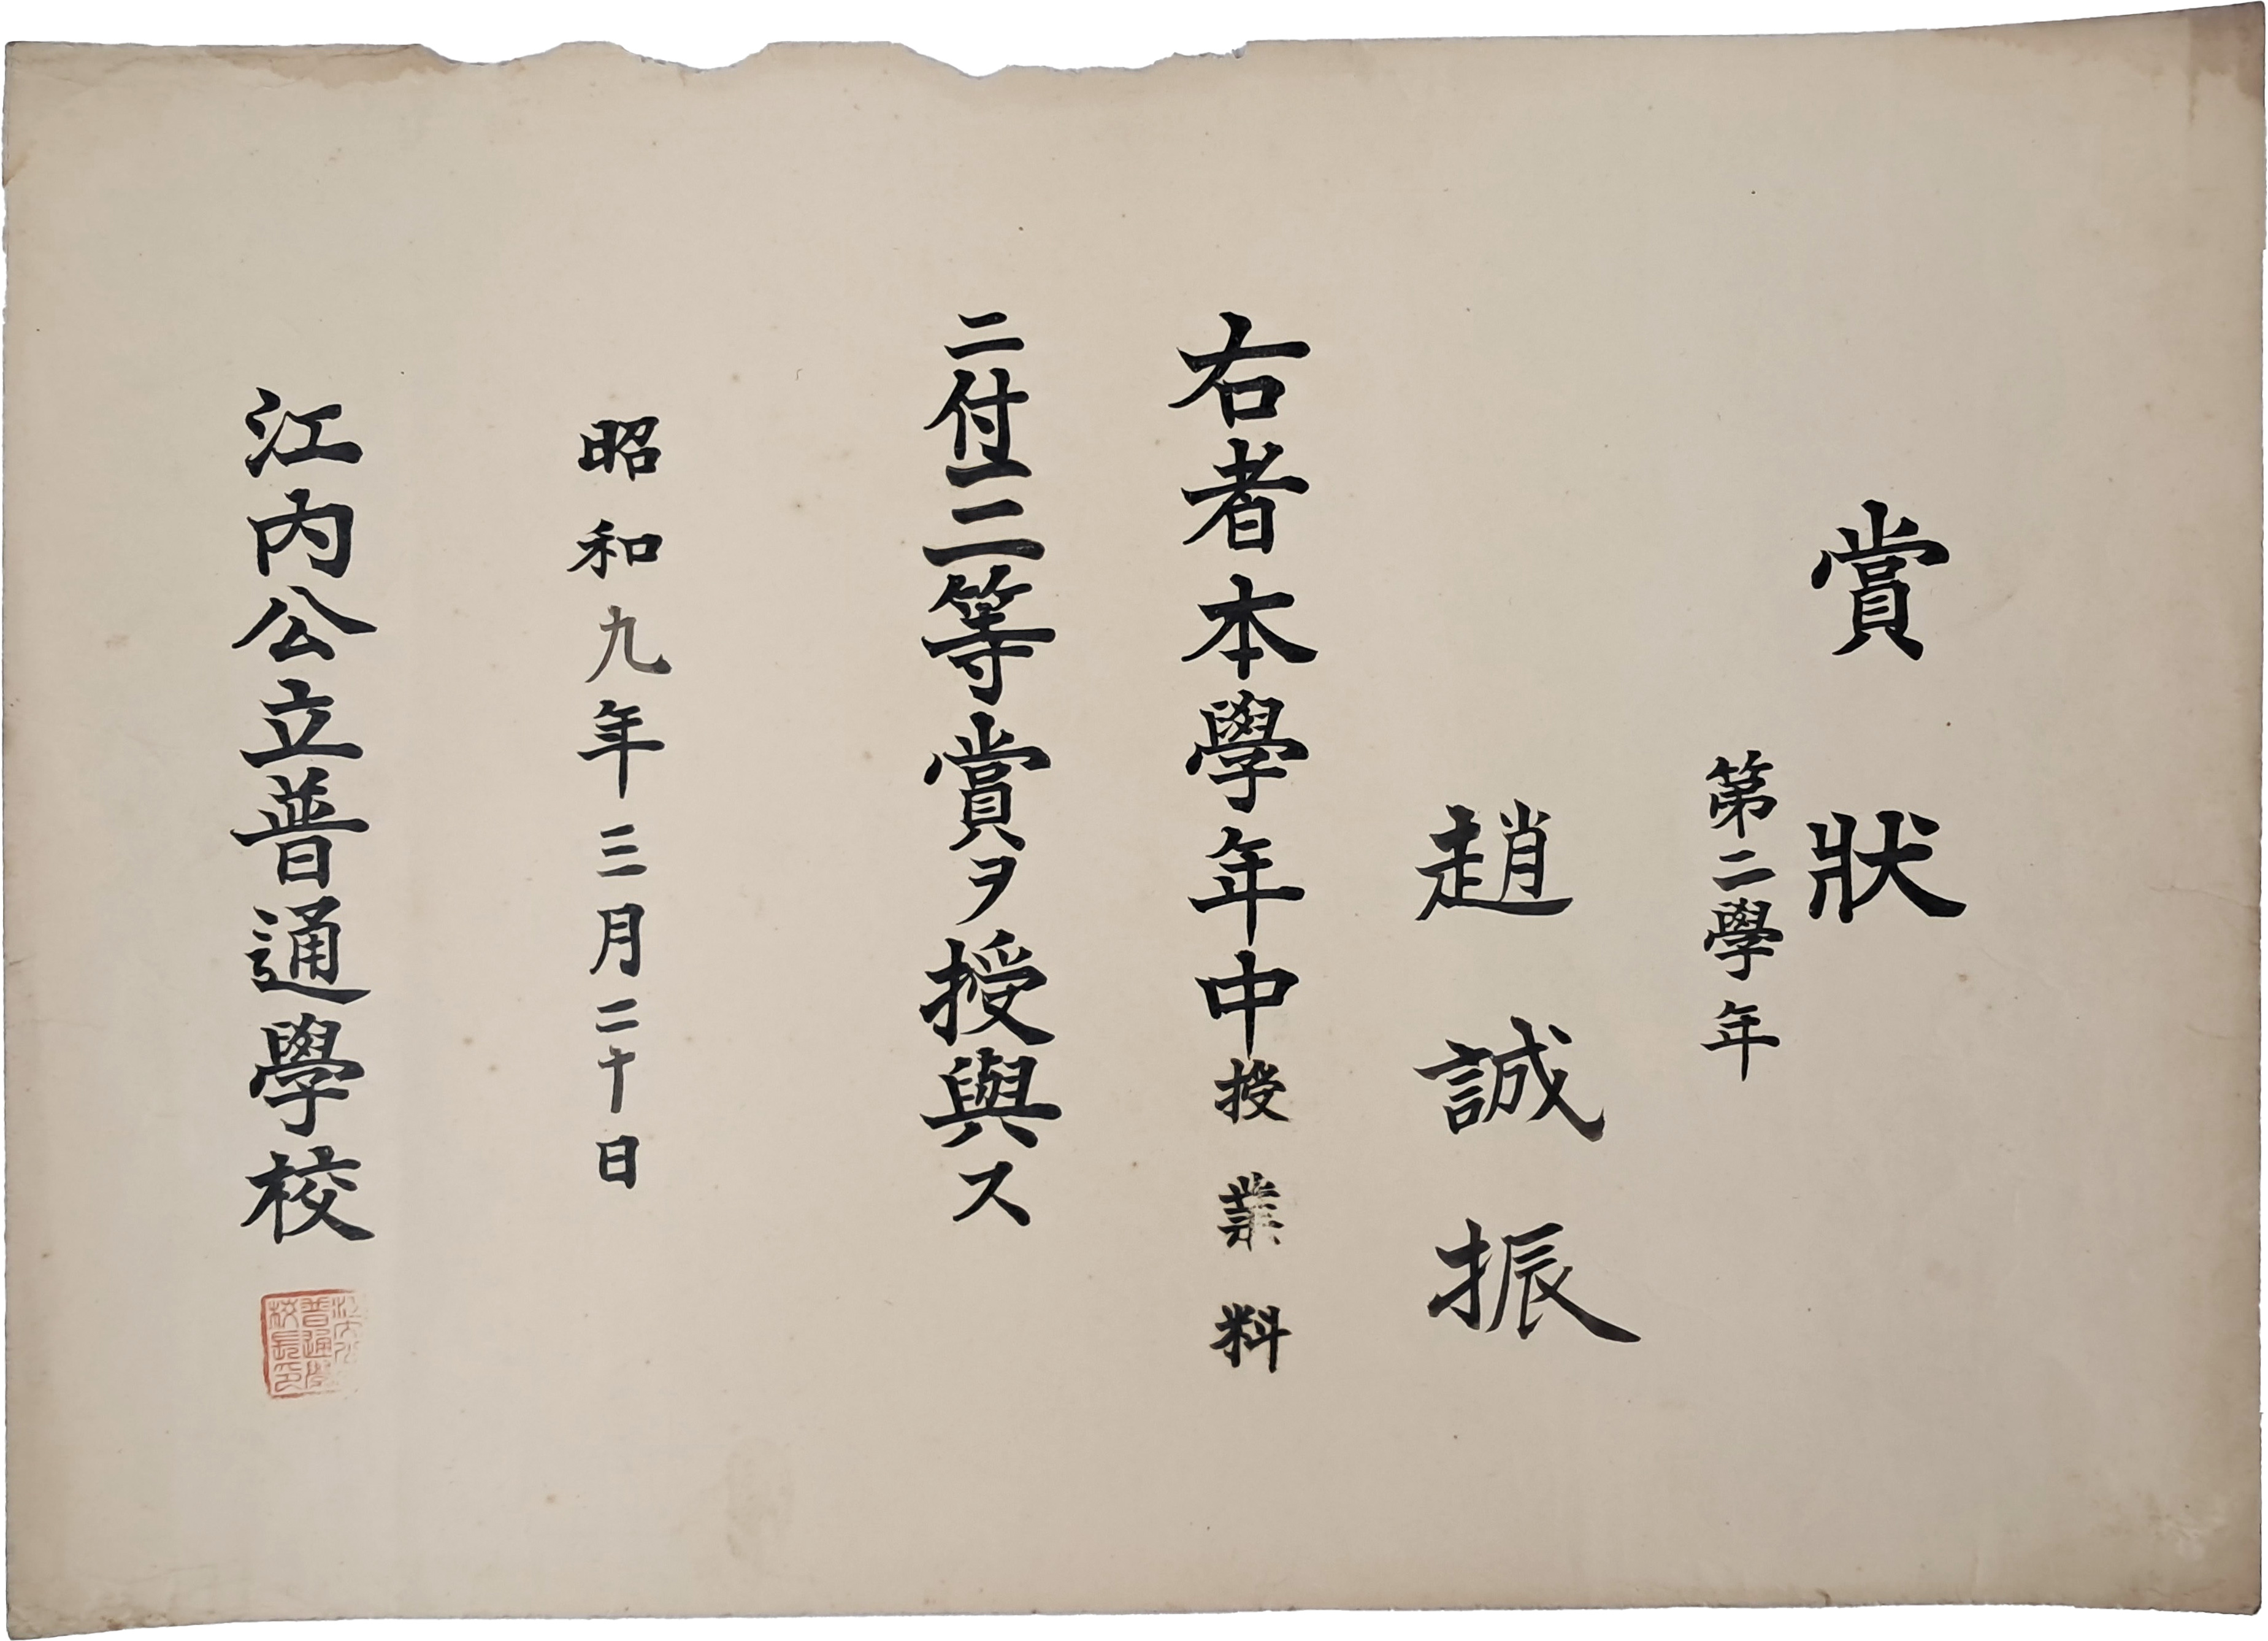 賞狀
第二學年
趙誠振
右者本學年中授業料
ニ付三等賞ヲ授與ス
昭和九年三月二十日
江內公立普通學校
江內公立
普通學
校長印